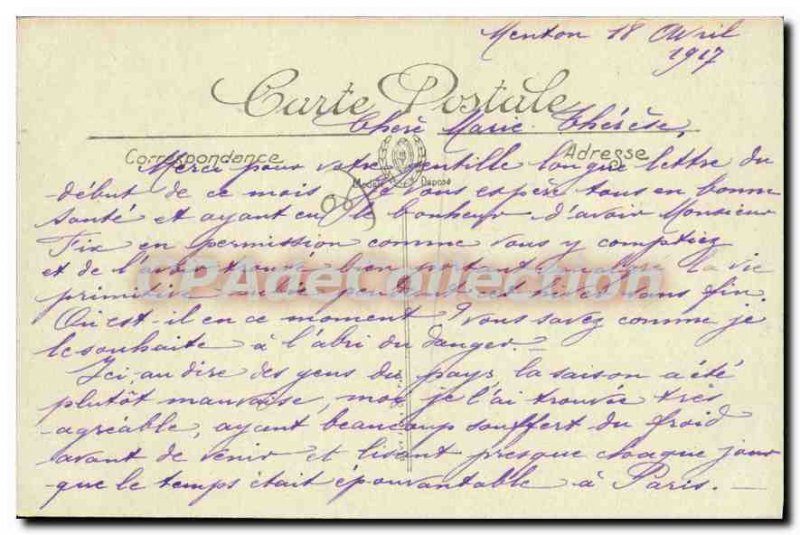 Menton 18 Avril
1917
Carte Postale
Chère Marie-Thérèse,
Correspondance
Adresse
Merci pour votre gentille longue lettre du
Modèle Déposé
début de ce mois. Je vous espère tous en bonne
santé et ayant eu le bonheur d'avoir Monsieur
Fix en permission comme vous y comptiez
et de l'avoir trouvé bien portant malgré la vie
CPAdeCollection
primitive pendant et sans fin.
Où est-il en ce moment? Vous savez comme je
le souhaite à l'abri du danger.
Ici, au dire des gens du pays, la saison a été
plutôt mauvaise, moi je l'ai trouvée très
agréable, ayant beaucoup souffert du froid
avant de venir et lisant presque chaque jour
que le temps était épouvantable à Paris. —